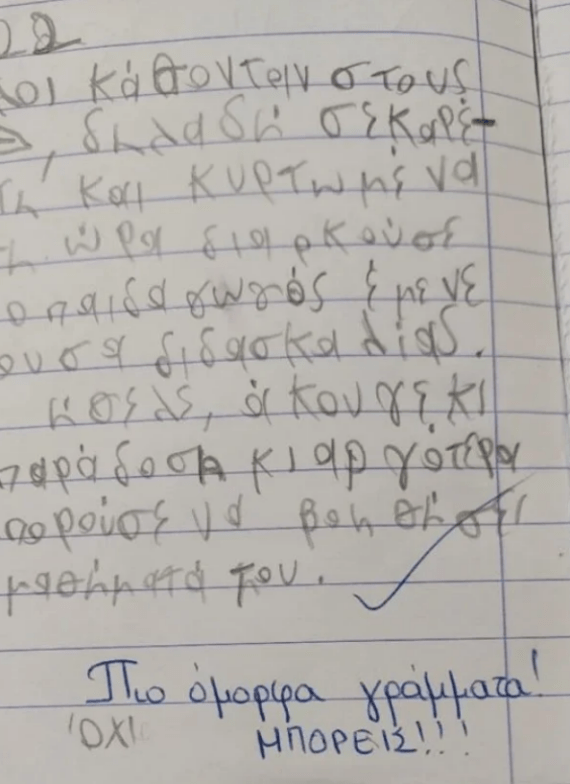 22
λοι κάθονταν στους
, δηλαδή σε καρέ-
τή και κυρτωμένα
η ώρα διαρκούσε
ο παιδαγωγός έμενε
ουσα διδασκαλίας.
ήθελε, άκουγε κι
παράδοση κι αργότερα
πορούσε να βοηθήσει
μαθήματά του.
Πιο όμορφα γράμματα!
'ΌΧΙ
ΜΠΟΡΕΙΣ!!!